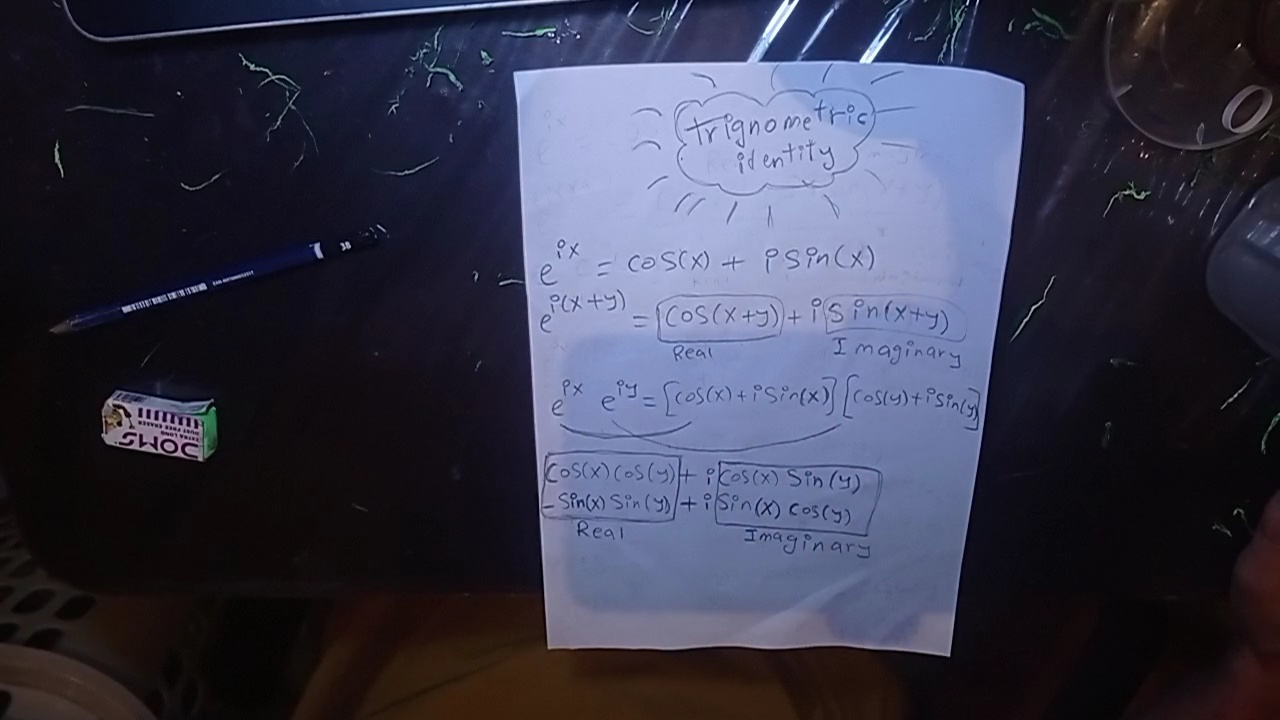 trignometric
identity
e^ix = cos(x) + i sin(x)
e^i(x+y) = cos(x+y) + i sin(x+y)
Real Imaginary
e^ix e^iy = [cos(x) + i sin(x)] [cos(y) + i sin(y)]
cos(x) cos(y) + i cos(x) sin(y)
- sin(x) sin(y) + i sin(x) cos(y)
Real Imaginary
3B
DOMS
DUST FREE ERASER
EXTRA LONG